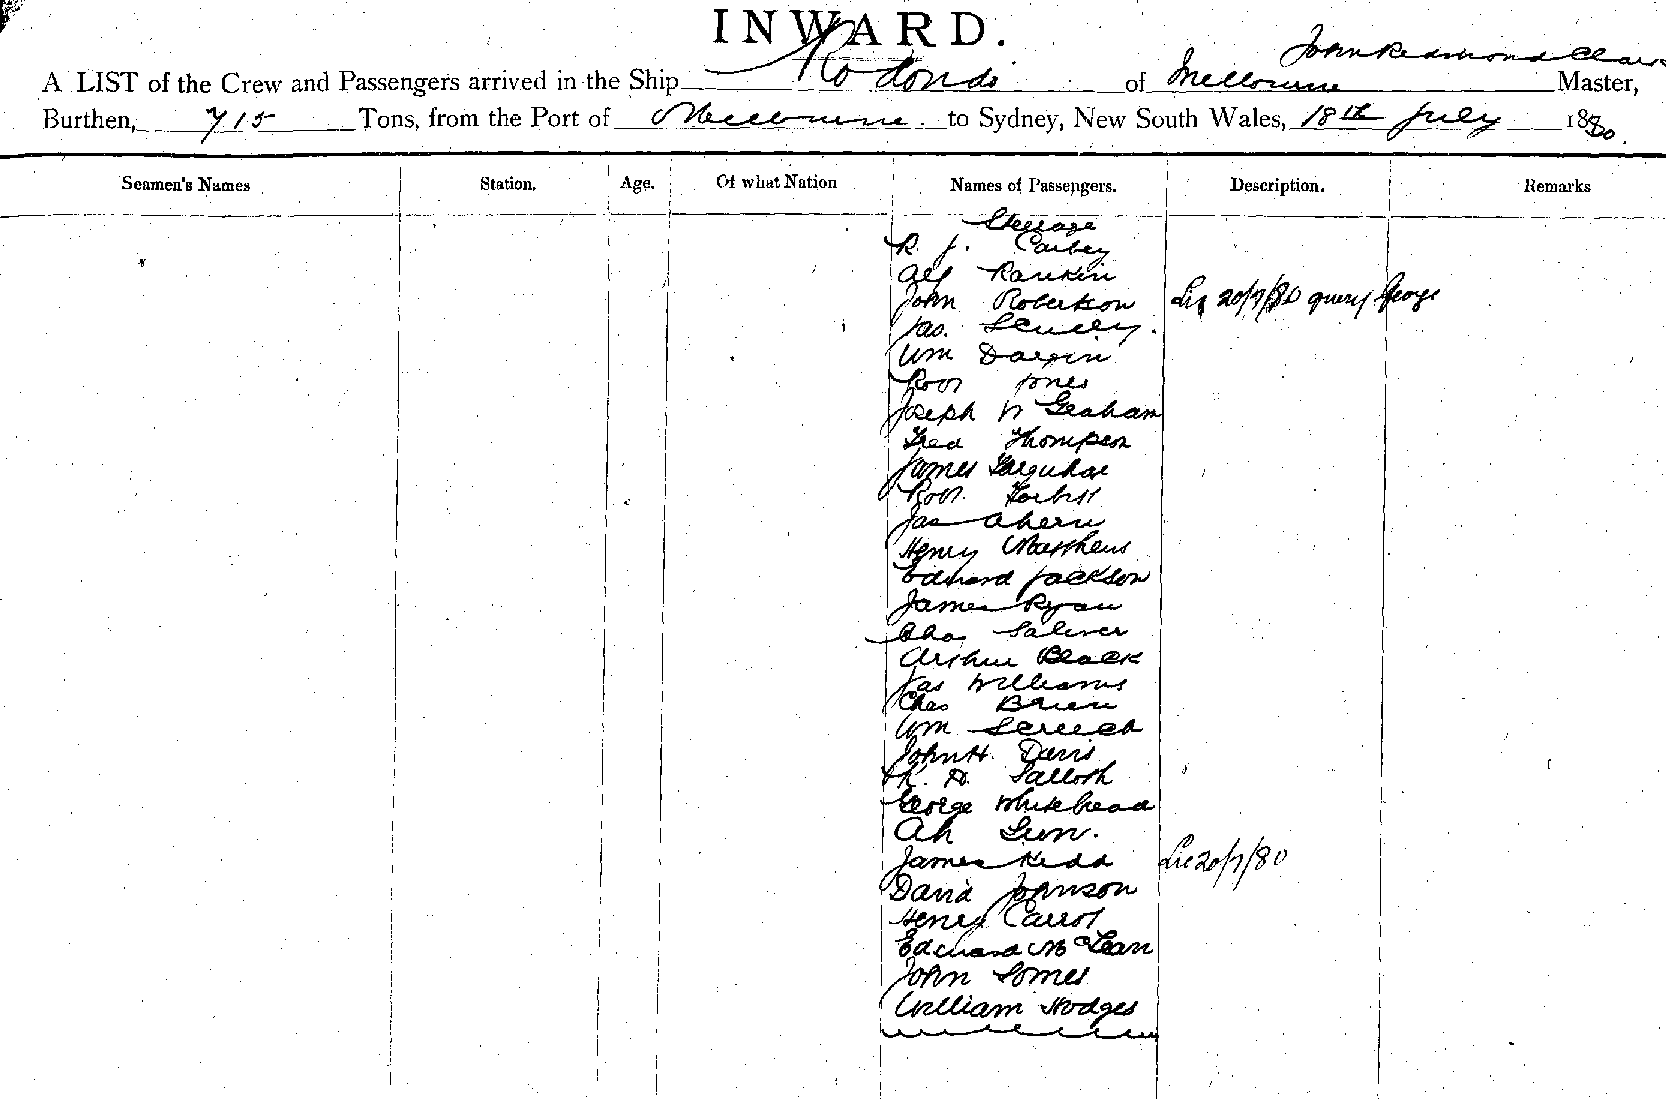 INWARD.
John Redmond Clare
A LIST of the Crew and Passengers arrived in the Ship Rodondo of Melbourne Master,
Burthen, 715 Tons, from the Port of Melbourne to Sydney, New South Wales, 18th July 1880.
Seamen's Names Station. Age. Of what Nation Names of Passengers. Description. Remarks
Steerage
R. J. Carbey
Alf Rankin
John Robertson Lic 20/7/80 query George
Jas.
Wm
Robt Jones
Joseph W Graham
Fred Thompson
James Farquhar
Robt. Forbest
Jas Ahern
Henry Matthews
Edward Jackson
James Ryan
Chas Saliver
Arthur Black
Jas Williams
Chas Brien
Wm Screech
John H. Davis
R. A. Salloth
George Whitehead
Ah Sun.
James Kidd Lic 20/7/80
David Johnson
Henry Carrol
Edward McLean
John Somes
William Hodges